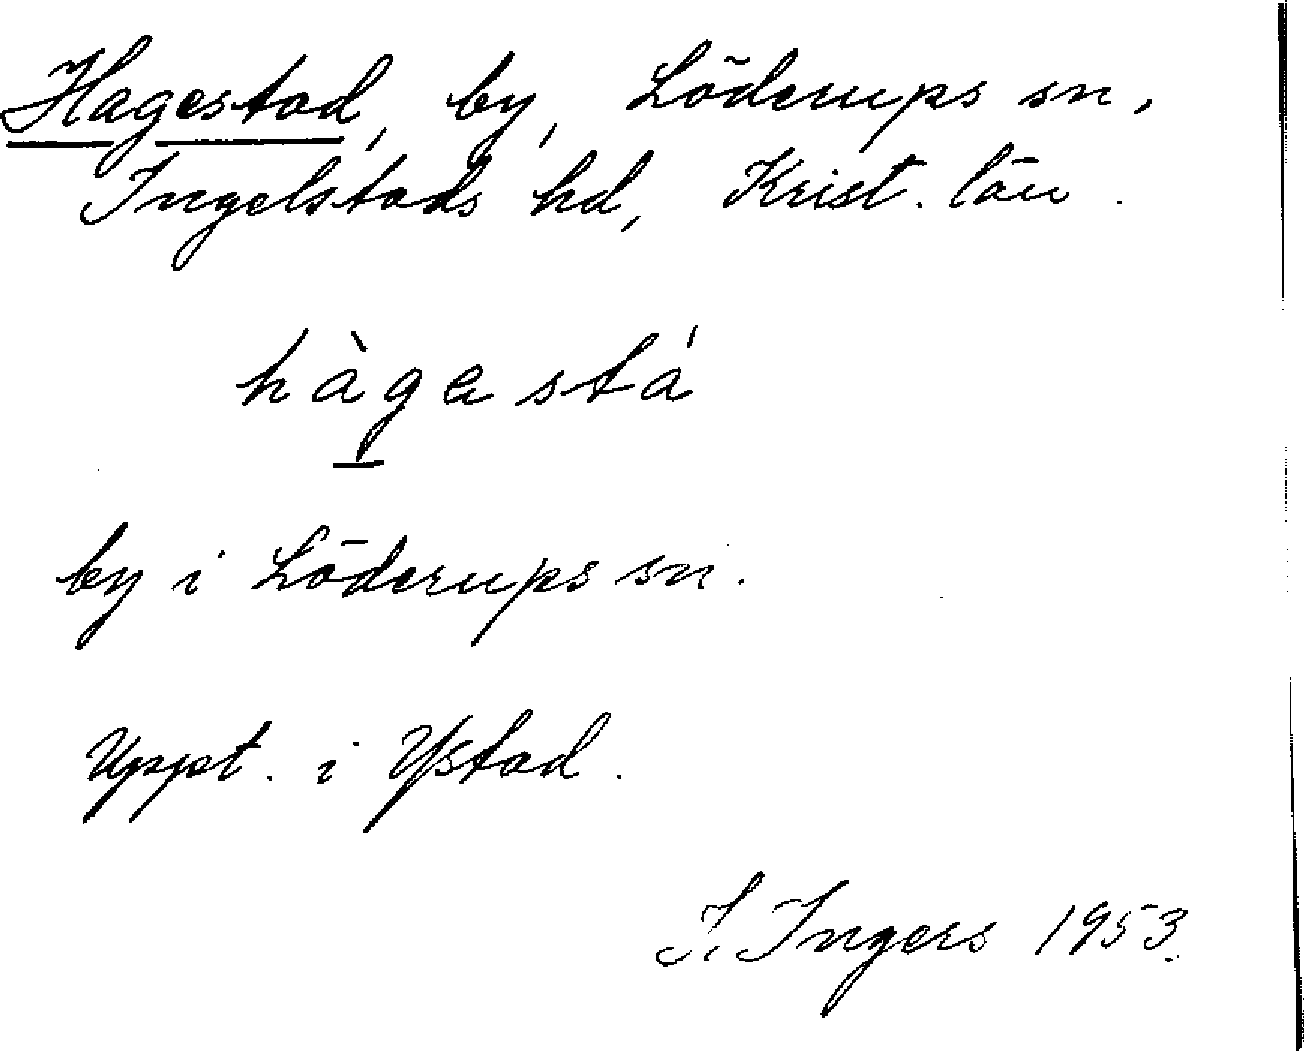 Hagestad, by, Löderups sn,
Ingelstads hd, Krist. län.
hàgastá
by i Löderups sn.
Uppt. i Ystad.
I. Ingers 1953.